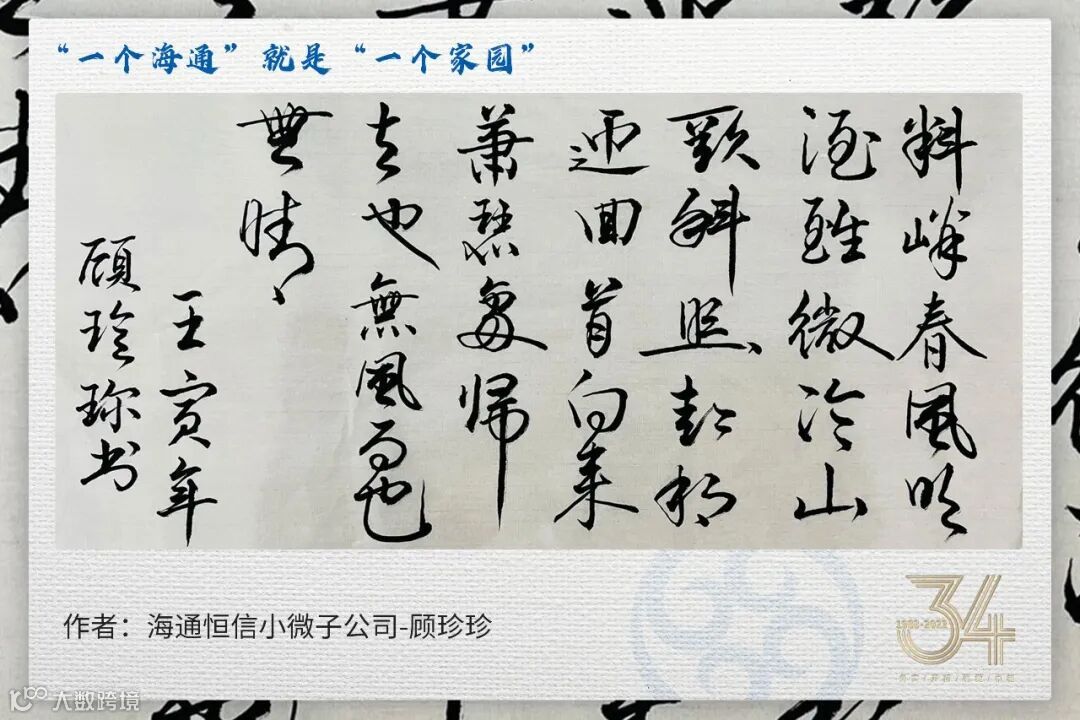 “一个海通”就是“一个家园”
料峭春風吹
酒醒微冷山
頭斜照却相
迎回首向来
蕭瑟處帰
去也無風雨也
無晴
壬寅年
顾珍珍书
作者：海通恒信小微子公司-顾珍珍
34
1988-2022
大数跨境